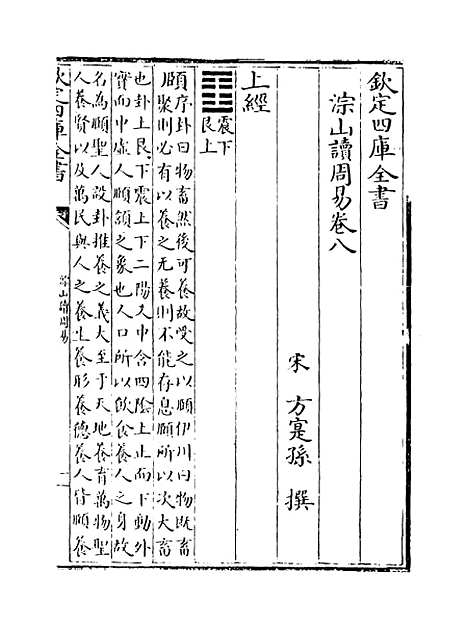 欽定四庫全書
淙山讀周易卷八
宋 方寔孫 撰
上經
震下
艮上
頤序卦曰物畜然後可養故受之以頤伊川曰物既畜
聚則必有以養之无養則不能存息頤所以次大畜
也卦上艮下震上下二陽爻中含四陰上止而下動外
實而中虛人頤頷之象也人口所以飲食養人之身故
名為頤聖人設卦推養之義大至于天地養育萬物聖
人養賢以及萬民與人之養生養形養德養人皆頤養
欽定四庫全書
淙山讀周易
一